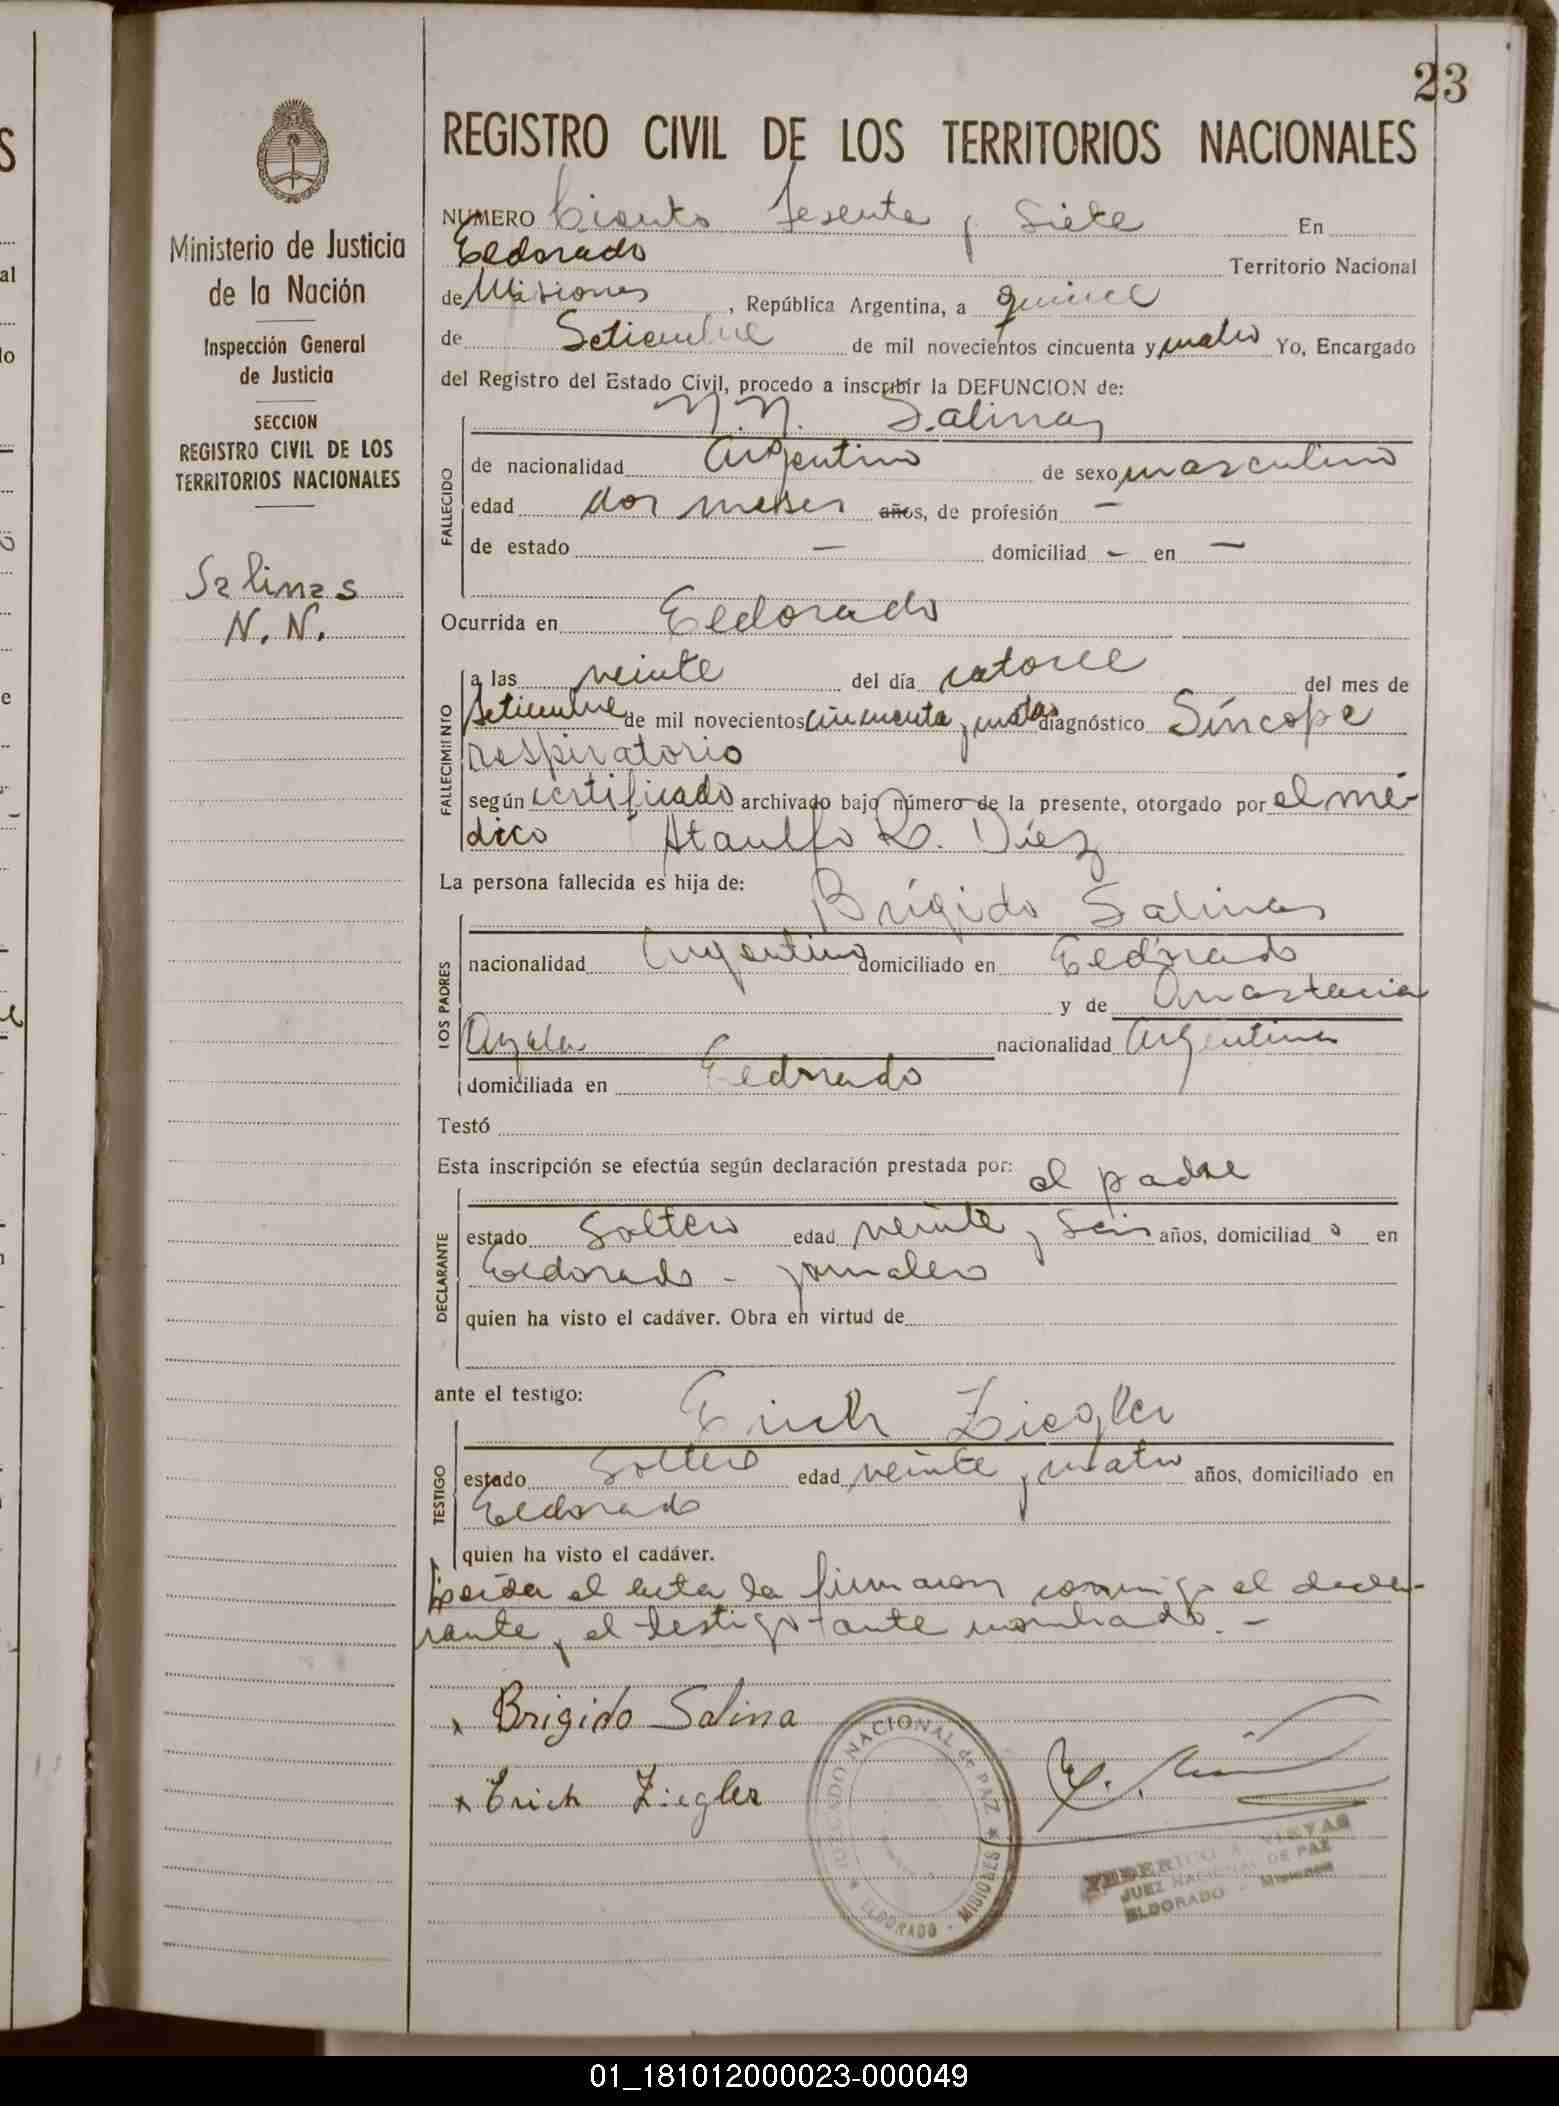 23
REGISTRO CIVIL DE LOS TERRITORIOS NACIONALES
Ministerio de Justicia
de la Nación
Inspección General
de Justicia
SECCION
REGISTRO CIVIL DE LOS
TERRITORIOS NACIONALES
Salinas
N. N.
NUMERO Ciento Sesenta y Siete En
Eldorado Territorio Nacional
de Misiones, República Argentina, a quince
de Setiembre de mil novecientos cincuenta y cuatro Yo, Encargado
del Registro del Estado Civil, procedo a inscribir la DEFUNCION de:
N.N. Salinas
FALLECIDO
de nacionalidad Argentino de sexo masculino
edad dos meses años, de profesión —
de estado — domiciliad — en —
Ocurrida en Eldorado
FALLECIMIENTO
a las veinte del día catorce del mes de
Setiembre de mil novecientos cincuenta y cuatro diagnóstico Síncope
respiratorio
según certificado archivado bajo número de la presente, otorgado por el mé-
dico Ataulfo R. Díez
La persona fallecida es hija de: Brígido Salinas
LOS PADRES
nacionalidad Argentino domiciliado en Eldorado
y de Anastacia
Ayala nacionalidad Argentina
domiciliada en Eldorado
Testó
Esta inscripción se efectúa según declaración prestada por: el padre
DECLARANTE
estado Soltero edad veinte y seis años, domiciliad o en
Eldorado - jornalero
quien ha visto el cadáver. Obra en virtud de
ante el testigo: Erich Ziegler
TESTIGO
estado Soltero edad veinte y cuatro años, domiciliado en
Eldorado
quien ha visto el cadáver.
Leída el acta la firmaron conmigo el decla-
rante y el testigo ante nombrado. -
x Brigido Salina
x Erich Ziegler
JUZGADO NACIONAL de PAZ
ELDORADO - MISIONES
FEDERICO A. VIEYAS
JUEZ NACIONAL DE PAZ
ELDORADO - Misiones
01_181012000023-000049